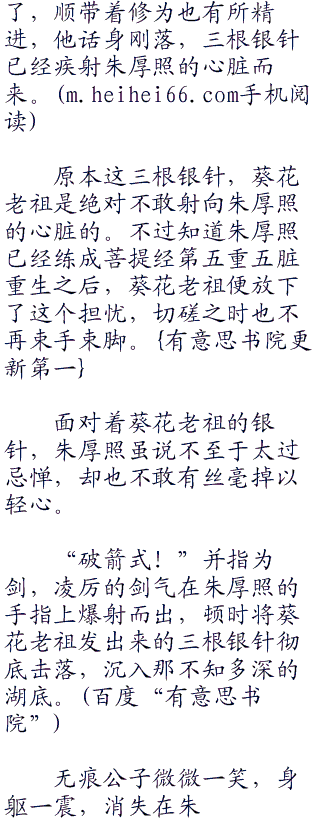 了，顺带着修为也有所精
进，他话身刚落，三根银针
已经疾射朱厚照的心脏而
来。(m.heihei66.com手机阅
读)
原本这三根银针，葵花
老祖是绝对不敢射向朱厚照
的心脏的。不过知道朱厚照
已经练成菩提经第五重五脏
重生之后，葵花老祖便放下
了这个担忧，切磋之时也不
再束手束脚。{有意思书院更
新第一}
面对着葵花老祖的银
针，朱厚照虽说不至于太过
忌惮，却也不敢有丝毫掉以
轻心。
“破箭式！”并指为
剑，凌厉的剑气在朱厚照的
手指上爆射而出，顿时将葵
花老祖发出来的三根银针彻
底击落，沉入那不知多深的
湖底。(百度“有意思书
院”)
无痕公子微微一笑，身
躯一震，消失在朱